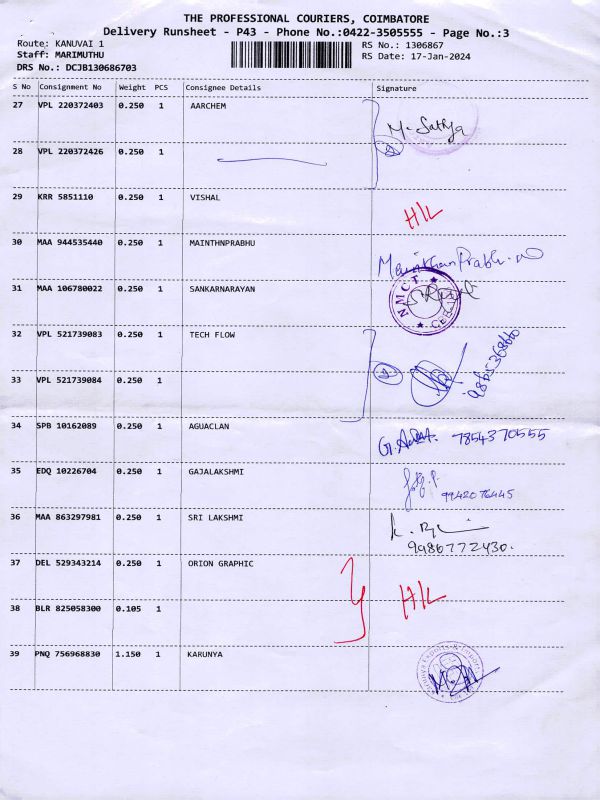 THE PROFESSIONAL COURIERS, COIMBATORE
Delivery Runsheet - P43 - Phone No.:0422-3505555 - Page No.:3
Route: KANUVAI 1 RS No.: 1306867
Staff: MARIMUTHU RS Date: 17-Jan-2024
DRS No.: DCJB130686703
S No Consignment No Weight PCS Consignee Details Signature
27 VPL 220372403 0.250 1 AARCHEM
M. Sathya
28 VPL 220372426 0.250 1
29 KRR 5851110 0.250 1 VISHAL
H/L
30 MAA 944535440 0.250 1 MAINTHNPRABHU
MainthanPrabhu
31 MAA 106780022 0.250 1 SANKARNARAYAN
NMCT
32 VPL 521739083 0.250 1 TECH FLOW
33 VPL 521739084 0.250 1
34 SPB 10162089 0.250 1 AGUACLAN
7854370555
35 EDQ 10226704 0.250 1 GAJALAKSHMI
9942076445
36 MAA 863297981 0.250 1 SRI LAKSHMI
9986772430.
37 DEL 529343214 0.250 1 ORION GRAPHIC
H/L
38 BLR 825058300 0.105 1
39 PNQ 756968830 1.150 1 KARUNYA